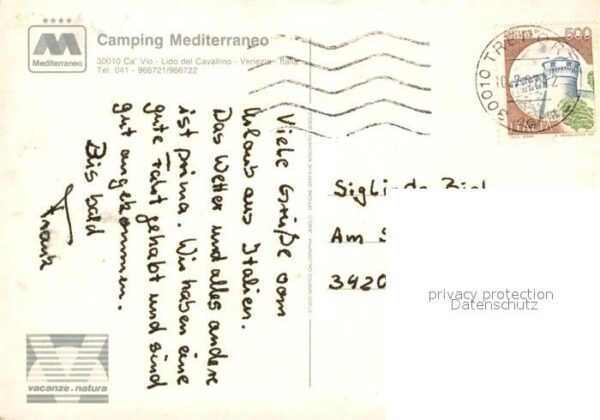 ★★★★
M
Mediterraneo
Camping Mediterraneo
30010 Ca' Vio - Lido del Cavallino - Venezia - Italia
Tel. 041 - 966721/966722
500
30010 TREPORTI
ITALIA
Viele Grüße vom
Urlaub aus Italien.
Das Wetter und alles andere
ist prima. Wir haben eine
gute Fahrt gehabt und sind
gut angekommen.
Bis bald
Frank
Siglinde
Am
3420
privacy protection
Datenschutz
vacanze.natura